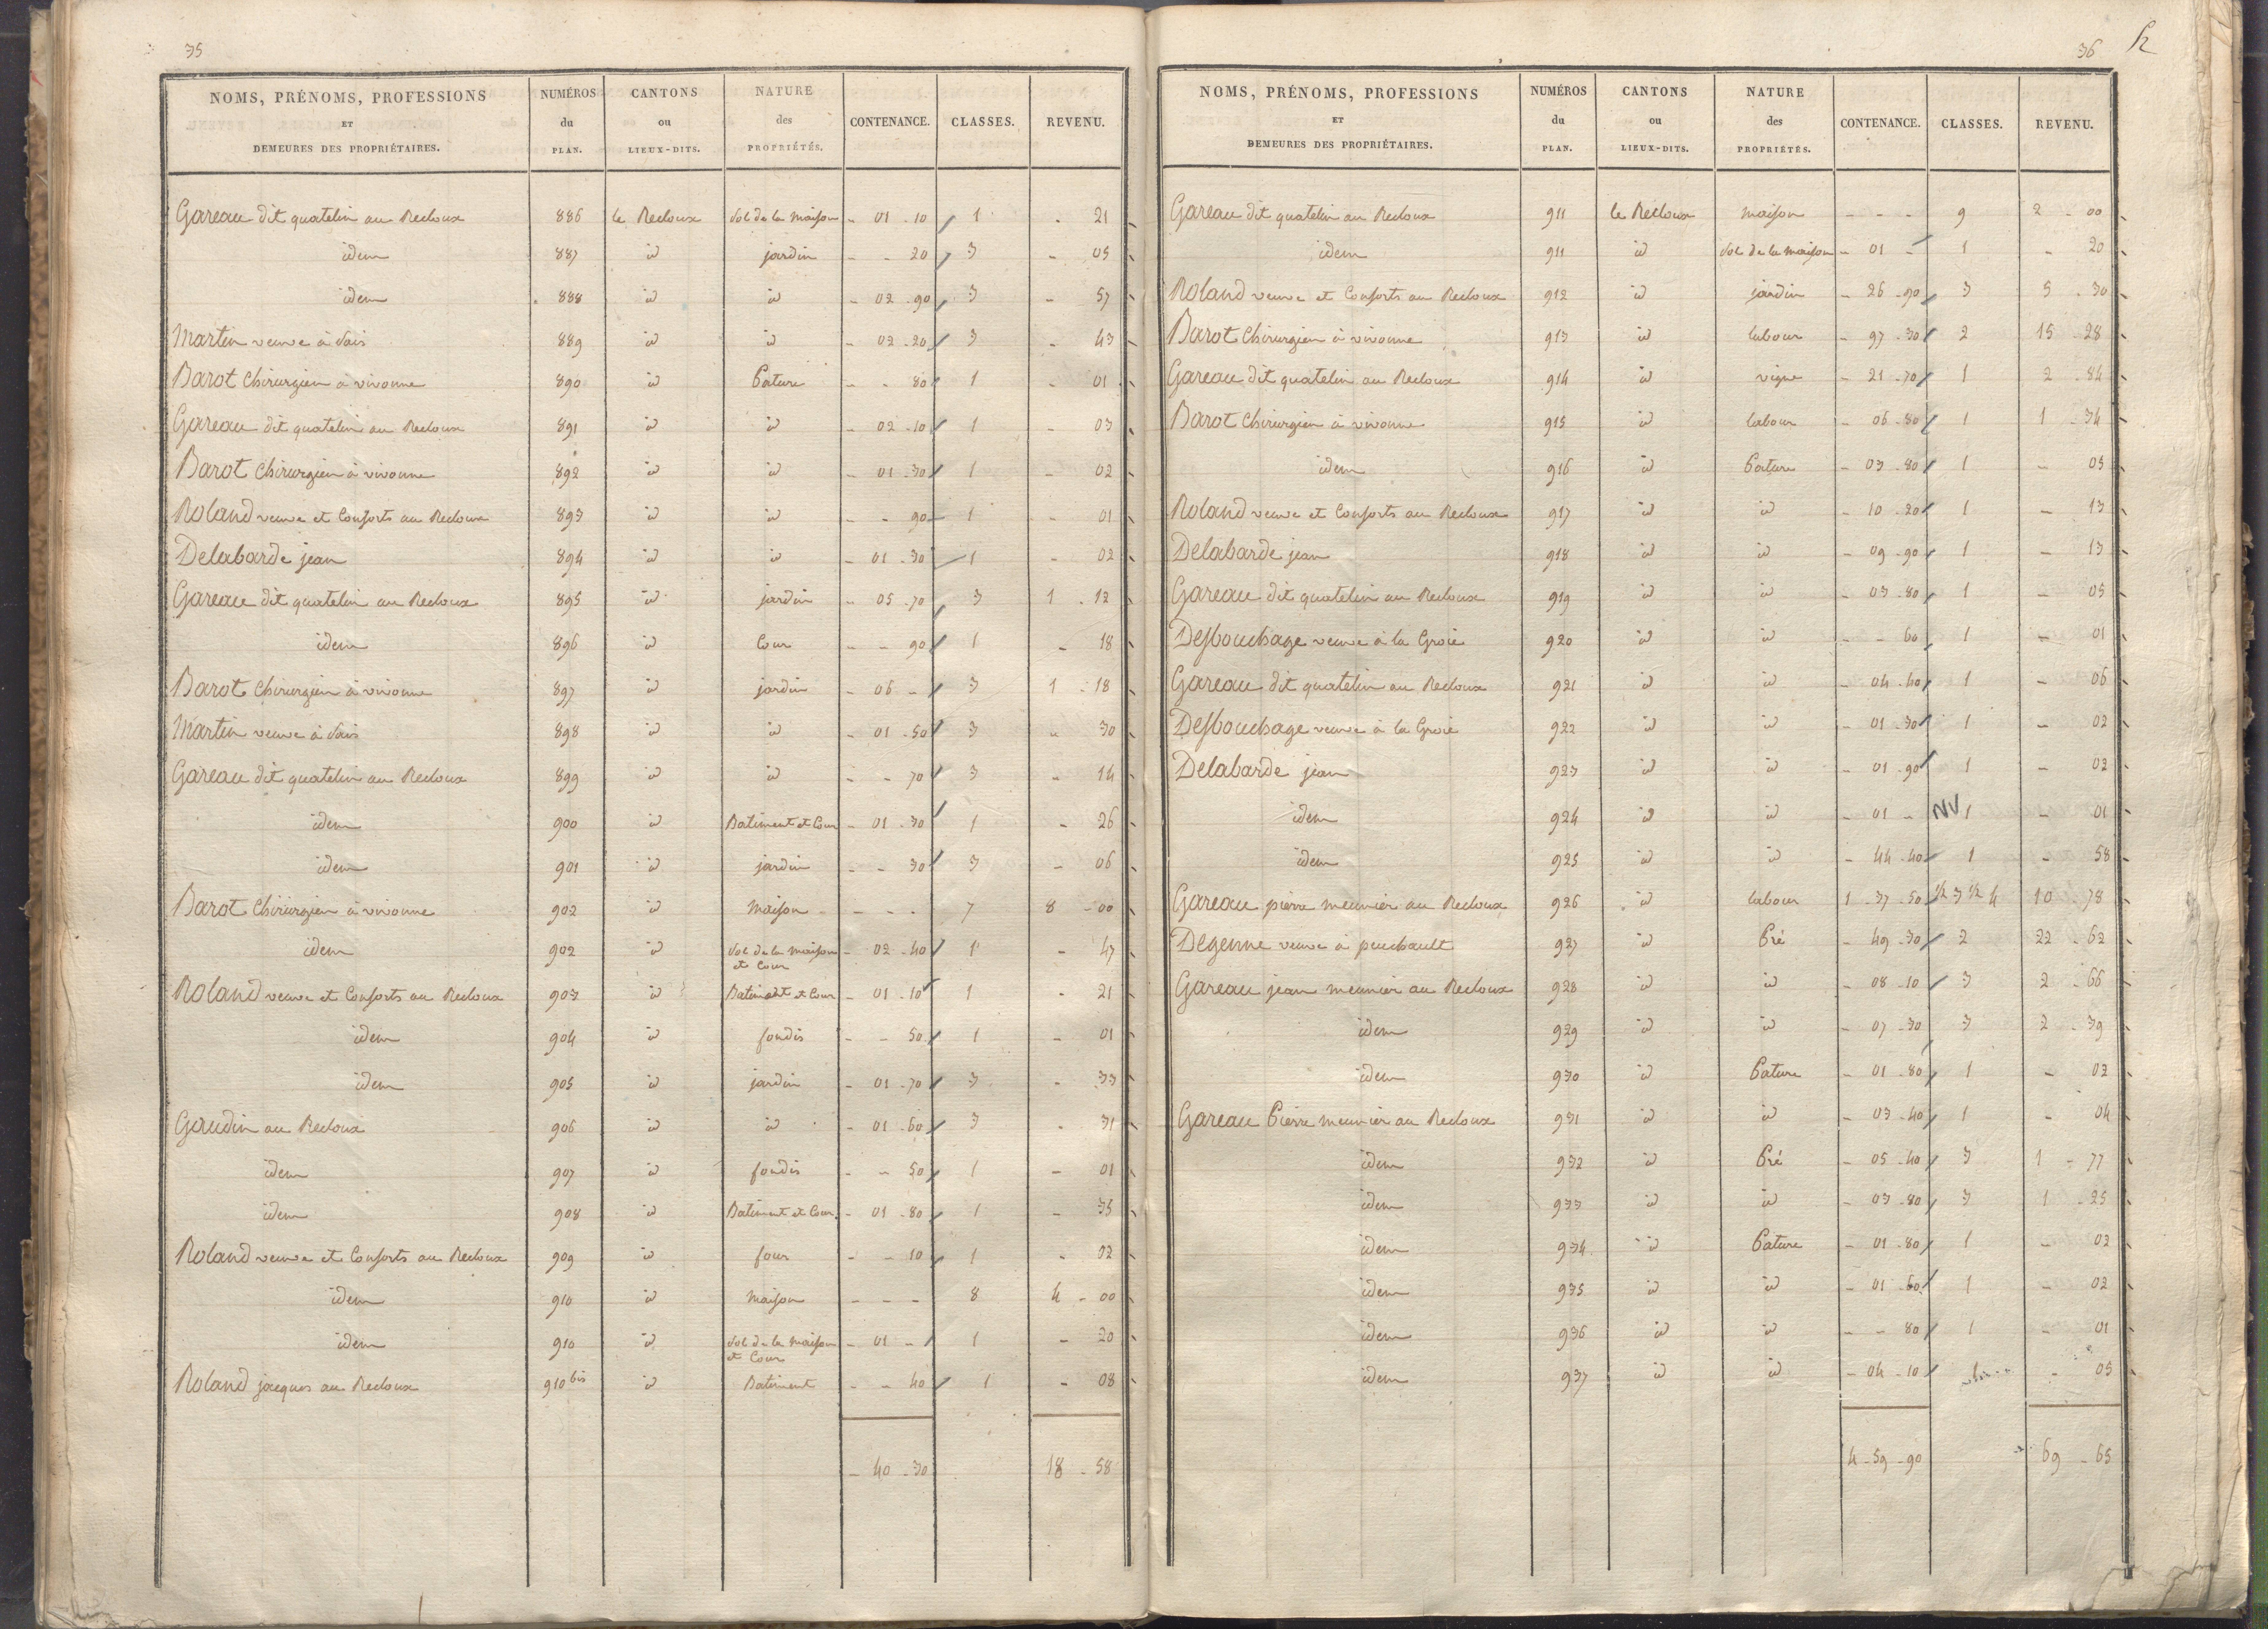 35
NOMS, PRÉNOMS, PROFESSIONS ET DEMEURES DES PROPRIÉTAIRES. NUMÉROS du PLAN. CANTONS ou LIEUX-DITS. NATURE des PROPRIÉTÉS. CONTENANCE. CLASSES. REVENU.
Gareau dit quatelin au Recloux 886 le Recloux Sol de la maison - 01 - 10 1 - 21
idem 887 id jardin - - 20 3 - 05
idem 888 id id - 02 - 90 3 - 57
Martin veuve à Sais 889 id id - 02 - 20 3 - 43
Barot chirurgien à vivonne 890 id Pature - - 80 1 - 01
Gareau dit quatelin au Recloux 891 id id - 02 - 10 1 - 03
Barot chirurgien à vivonne 892 id id - 01 - 30 1 - 02
Roland veuve et Consorts au Recloux 893 id id - - 90 1 - 01
Delabarde jean 894 id id - 01 - 30 1 - 02
Gareau dit quatelin au Recloux 895 id jardin - 05 - 70 3 1 - 12
idem 896 id Cour - - 90 1 - 18
Barot chirurgien à vivonne 897 id jardin - 06 - 3 1 - 18
Martin veuve à Sais 898 id id - 01 - 50 3 - 30
Gareau dit quatelin au Recloux 899 id id - - 70 3 - 14
idem 900 id Batiment et Cour - 01 - 30 1 - 26
idem 901 id jardin - - 30 3 - 06
Barot Chirurgien à vivonne 902 id Maison - - - 7 8 - 00
idem 902 id Sol de la maison et Cour - 02 - 40 1 - 47
Roland veuve et Consorts au Recloux 903 id Batiment et Cour - 01 - 10 1 - 21
idem 904 id fondis - - 50 1 - 01
idem 905 id jardin - 01 - 70 3 - 33
Gaudin au Recloux 906 id id - 01 - 60 3 - 31
idem 907 id fondis - - 50 1 - 01
idem 908 id Batiment et Cour - 01 - 80 1 - 35
Roland veuve et Consorts au Recloux 909 id four - - 10 1 - 02
idem 910 id Maison - - - 8 4 - 00
idem 910 id Sol de la Maison et Cour - 01 - 1 - 20
Roland jacques au Recloux 910 bis id Batiment - - 40 1 - 08
- 40 - 30 18 - 58
36
NOMS, PRÉNOMS, PROFESSIONS ET DEMEURES DES PROPRIÉTAIRES. NUMÉROS du PLAN. CANTONS ou LIEUX-DITS. NATURE des PROPRIÉTÉS. CONTENANCE. CLASSES. REVENU.
Gareau dit quatelin au Recloux 911 le Recloux maison - - - 9 2 - 00
idem 911 id Sol de la maison - 01 - 1 - 20
Roland veuve et Consorts au Recloux 912 id jardin - 26 - 90 3 5 - 30
Barot Chirurgien à vivonne 913 id labour - 97 - 30 2 15 - 28
Gareau dit quatelin au Recloux 914 id vigne - 21 - 70 1 2 - 84
Barot Chirurgien à vivonne 915 id labour - 06 - 80 1 1 - 34
idem 916 id Pature - 03 - 80 1 - 05
Roland veuve et Consorts au Recloux 917 id id - 10 - 20 1 - 13
Delabarde jean 918 id id - 09 - 90 1 - 13
Gareau dit quatelin au Recloux 919 id id - 03 - 80 1 - 05
Desbouchage veuve à la Groie 920 id id - - 60 1 - 01
Gareau dit quatelin au Recloux 921 id id - 04 - 40 1 - 06
Desbouchage veuve à la Groie 922 id id - 01 - 30 1 - 02
Delabarde jean 923 id id - 01 - 90 1 - 02
idem 924 id id - 01 - 1 - 01
idem 925 id id - 44 - 40 1 - 58
Gareau pierre meunier au Recloux 926 id labour 1 - 37 - 50 1/2 3 1/2 4 10 - 78
Degenne veuve à peuchault 927 id Pré - 49 - 30 2 22 - 62
Gareau jean meunier au Recloux 928 id id - 08 - 10 3 2 - 66
idem 929 id id - 07 - 30 3 2 - 39
idem 930 id Pature - 01 - 80 1 - 02
Gareau Pierre meunier au Recloux 931 id id - 03 - 40 1 - 04
idem 932 id Pré - 05 - 40 3 1 - 77
idem 933 id id - 03 - 80 3 1 - 25
idem 934 id Pature - 01 - 80 1 - 02
idem 935 id id - 01 - 60 1 - 02
idem 936 id id - - 80 1 - 01
idem 937 id id - 04 - 10 1 - 05
4 - 59 - 90 69 - 65